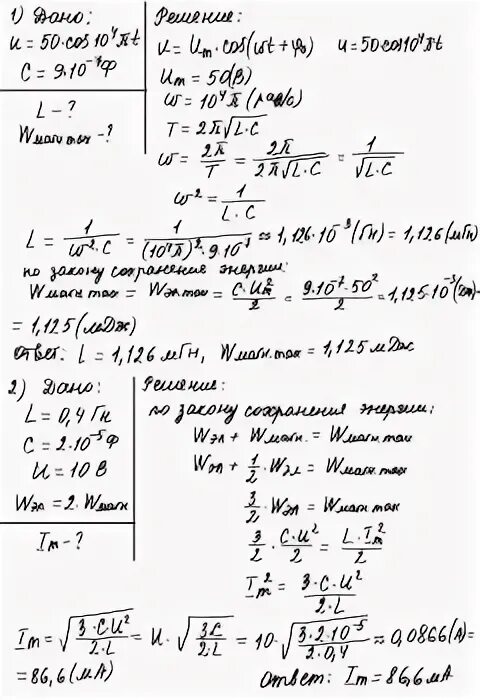 1) Дано:
u = 50·cos10⁴πt
C = 9·10⁻⁷Ф
L - ?
Wмагн max - ?
Решение:
u = Um·cos(ωt+φ₀) u = 50cos10⁴πt
Um = 50(В)
ω = 10⁴π(рад/с)
T = 2π√(L·C)
ω = 2π/T = 2π/(2π√(L·C)) = 1/√(L·C)
ω² = 1/(L·C)
L = 1/(ω²·C) = 1/((10⁴π)²·9·10⁻⁷) ≈ 1,126·10⁻³(Гн) = 1,126(мГн)
по закону сохранение энергии:
Wмагн max = Wэл max = C·Um²/2 = 9·10⁻⁷·50²/2 = 1,125·10⁻³(Дж) =
= 1,125(мДж)
ответ: L = 1,126 мГн, Wмагн. max = 1,125 мДж
2) Дано:
L = 0,4 Гн
C = 2·10⁻⁵Ф
u = 10 В
Wэл = 2·Wмагн
Im - ?
Решение:
по закону сохранения энергии:
Wэл + Wмагн. = Wмагн. max
Wэл + 1/2·Wэл = Wмагн. max
3/2·Wэл = Wмагн. max
3/2·C·u²/2 = L·Im²/2
Im² = 3·C·u²/(2·L)
Im = √(3·C·u²/(2·L)) = u·√(3C/(2·L)) = 10·√(3·2·10⁻⁵/(2·0,4)) ≈ 0,0866(А) =
= 86,6(мА) ответ: Im = 86,6мА